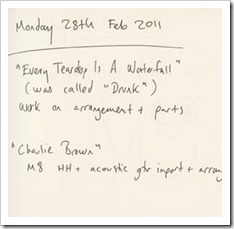 Monday 28th Feb 2011
"Every Teardrop Is A Waterfall"
(was called "Drunk")
work on arrangement + parts
"Charlie Brown"
M8 HH + acoustic gtr import + array